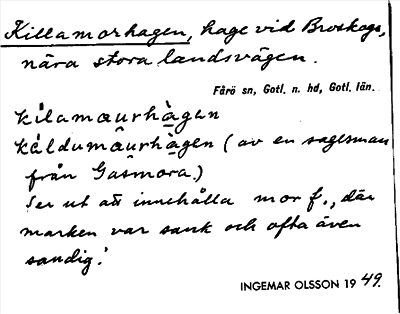 Killamorhagen, hage vid Broskogs,
nära stora landsvägen.
Fårö sn, Gotl. n. hd, Gotl. län.
kilamæurhàgan
käldumäurhàgen (av en sagesman
från Gåsmora.)
Ser ut att innehålla mor f., där
marken var sank och ofta även
sandig.
INGEMAR OLSSON 1949.